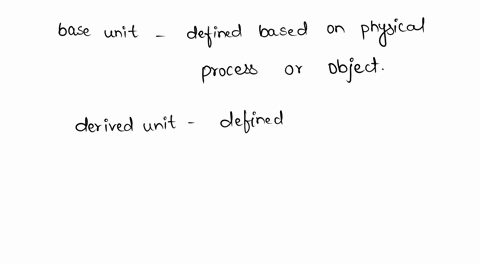 base unit - defined based on physical
process or object.
derived unit - defined